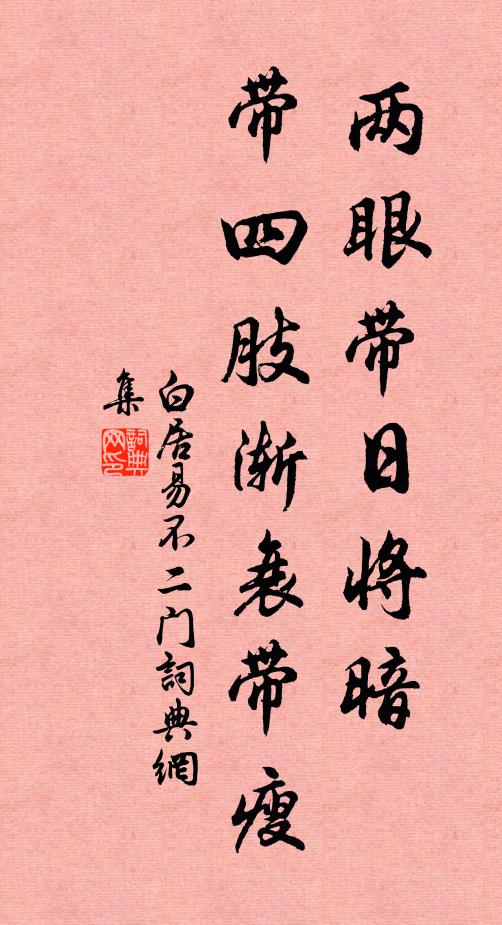 两眼带日将暗
带四肢渐衰带瘦
白居易不二门词典網
集
詞典
网印